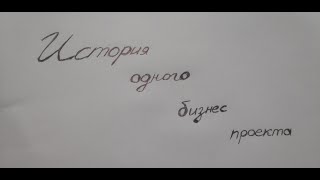 История
одного
бизнес
проекта